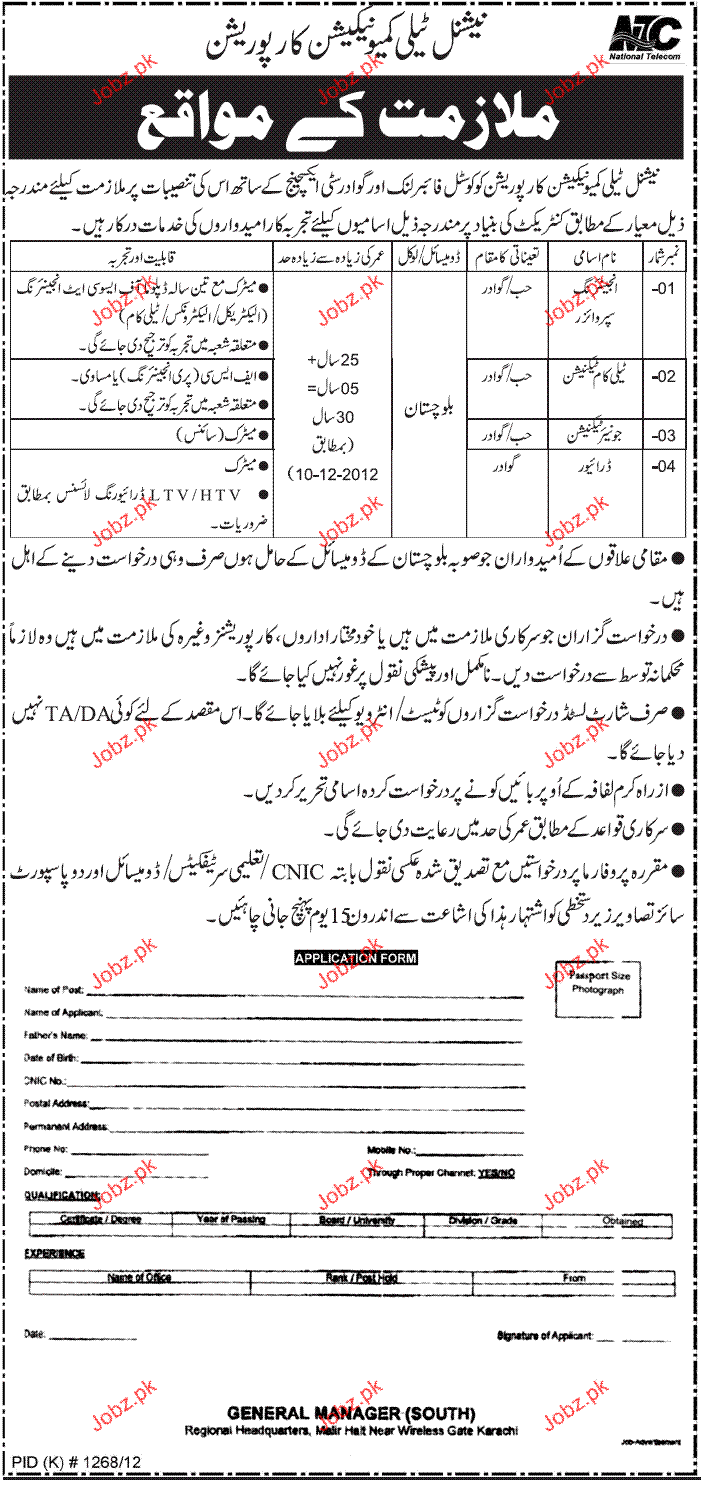 نیشنل ٹیلی کمیونیکیشن کارپوریشن
NTC
National Telecom
ملازمت کے مواقع
نیشنل ٹیلی کمیونیکیشن کارپوریشن کو کوسٹل فائبر لنک اور گوادر سٹی ایکسچینج کے ساتھ اس کی تنصیبات پر ملازمت کیلئے مندرجہ
ذیل معیار کے مطابق کنٹریکٹ کی بنیاد پر مندرجہ ذیل اسامیوں کیلئے تجربہ کار امیدواروں کی خدمات درکار ہیں۔
نمبر شمار نام اسامی تعیناتی کا مقام ڈومیسائل/لوکل عمر کی زیادہ سے زیادہ حد قابلیت اور تجربہ
01- انجینئرنگ سپروائزر حب/گوادر بلوچستان
25 سال +
05 سال =
30 سال
(بمطابق
10-12-2012)
● میٹرک مع تین سالہ ڈپلومہ آف ایسوسی ایٹ انجینئرنگ
(الیکٹریکل/الیکٹرونکس/ٹیلی کام)
● متعلقہ شعبہ میں تجربہ کو ترجیح دی جائے گی۔
02- ٹیلی کام ٹیکنیشن حب/گوادر
● ایف ایس سی (پری انجینئرنگ) یا مساوی۔
● متعلقہ شعبہ میں تجربہ کو ترجیح دی جائے گی۔
03- جونیئر ٹیکنیشن حب/گوادر ● میٹرک (سائنس)
04- ڈرائیور گوادر ● میٹرک
● LTV/HTV ڈرائیورنگ لائسنس بمطابق
ضروریات۔
● مقامی علاقوں کے اُمیدواران جو صوبہ بلوچستان کے ڈومیسائل کے حامل ہوں صرف وہی درخواست دینے کے اہل
ہیں۔
● درخواست گزاران جو سرکاری ملازمت میں ہیں یا خود مختار اداروں، کارپوریشنز وغیرہ کی ملازمت میں ہیں وہ لازماً
محکمانہ توسط سے درخواست دیں۔ نامکمل اور پیشگی نقول پر غور نہیں کیا جائے گا۔
● صرف شارٹ لسٹڈ درخواست گزاروں کو ٹیسٹ/انٹرویو کیلئے بلایا جائے گا۔ اس مقصد کے لئے کوئی TA/DA نہیں
دیا جائے گا۔
● از راہ کرم لفافہ کے اُوپر بائیں کونے پر درخواست کردہ اسامی تحریر کردیں۔
● سرکاری قواعد کے مطابق عمر کی حد میں رعایت دی جائے گی۔
● مقررہ پروفارما پر درخواستیں مع تصدیق شدہ عکسی نقول بابتہ CNIC/تعلیمی سرٹیفکیٹس/ڈومیسائل اور دو پاسپورٹ
سائز تصاویر زیر دستخطی کو اشتہار ہذا کی اشاعت سے اندرون 15 یوم پہنچ جانی چاہئیں۔
APPLICATION FORM
Passport Size
Photograph
Name of Post:
Name of Applicant:
Father's Name:
Date of Birth:
CNIC No.:
Postal Address:
Permanent Address:
Phone No: Mobile No.:
Domicile: Through Proper Channel: YES/NO
QUALIFICATION:
Certificate / Degree Year of Passing Board / University Division / Grade Obtained
EXPERIENCE
Name of Office Rank / Post Hold From
Date: Signature of Applicant:
GENERAL MANAGER (SOUTH)
Regional Headquarters, Malir Halt Near Wireless Gate Karachi
Job-Advertisement
PID (K) # 1268/12
Jobz.pk